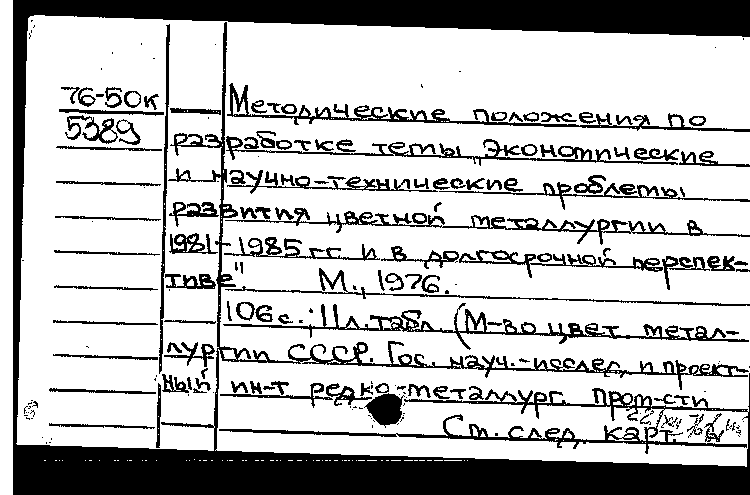 76-50к
5389
Методические положения по
разработке темы „Экономические
и научно-технические проблемы
развития цветной металлургии в
1981-1985 гг и в долгосрочной перспек-
тиве". М., 1976.
106 с.; 11 л. табл. (М-во цвет. метал-
лургии СССР. Гос. науч.-исслед. и проект-
ный ин-т редко-металлург. пром-сти
См. след. карт.